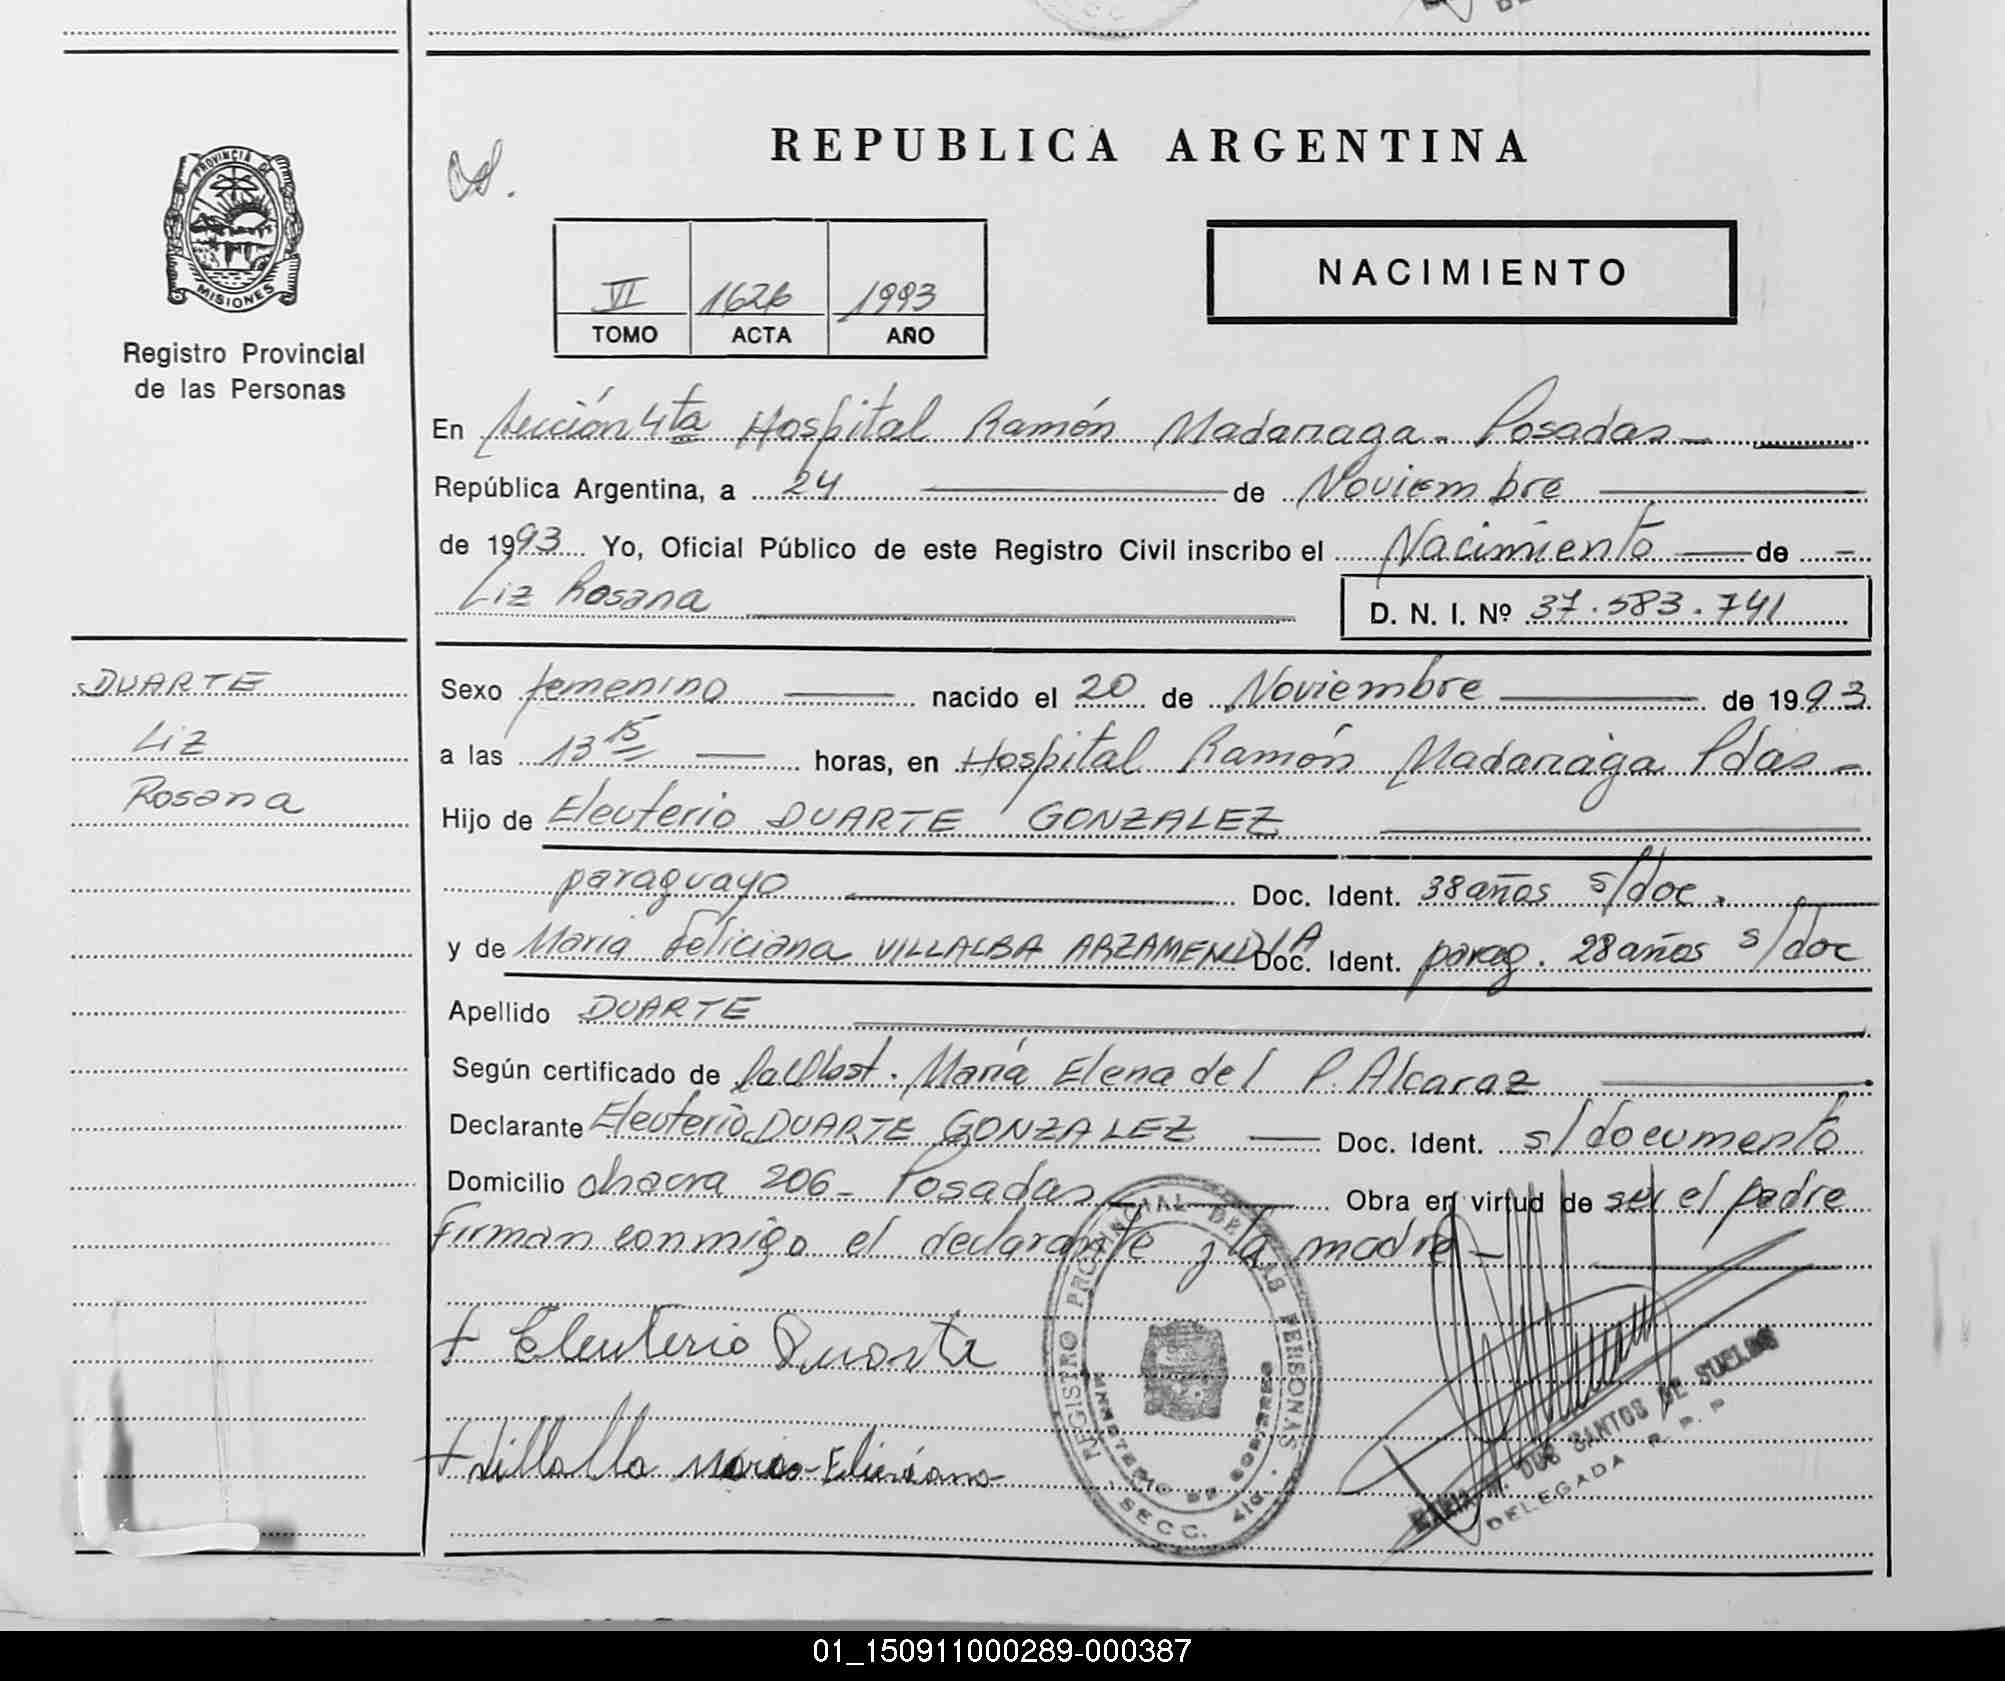 REPUBLICA ARGENTINA
PROVINCIA DE
MISIONES
Registro Provincial
de las Personas
VI 1626 1993
TOMO ACTA AÑO
NACIMIENTO
En Sección 4ta Hospital Ramón Madariaga - Posadas -
República Argentina, a 24 de Noviembre
de 1993 Yo, Oficial Público de este Registro Civil inscribo el Nacimiento de
Liz Rosana
D. N. I. Nº 37.583.741
DUARTE
Liz
Rosana
Sexo femenino nacido el 20 de Noviembre de 1993
a las 13 15 horas, en Hospital Ramón Madariaga Pdas -
Hijo de Eleuterio DUARTE GONZALEZ
paraguayo Doc. Ident. 38 años s/doc.
y de Maria Feliciana VILLALBA ARZAMENDIA Doc. Ident. parag. 28 años s/doc
Apellido DUARTE
Según certificado de la Obst. María Elena del P. Alcaraz
Declarante Eleuterio DUARTE GONZALEZ Doc. Ident. s/documento
Domicilio chacra 206 - Posadas Obra en virtud de ser el padre
Firman conmigo el declarante y la madre -
+ Eleuterio Duarte
+ Villalba Maria Feliciana
REGISTRO PROVINCIAL DE LAS PERSONAS
MINISTERIO DE GOBIERNO
SECC. 4ta.
DOS SANTOS DE SUELDO
DELEGADA R. P. P.
01_150911000289-000387